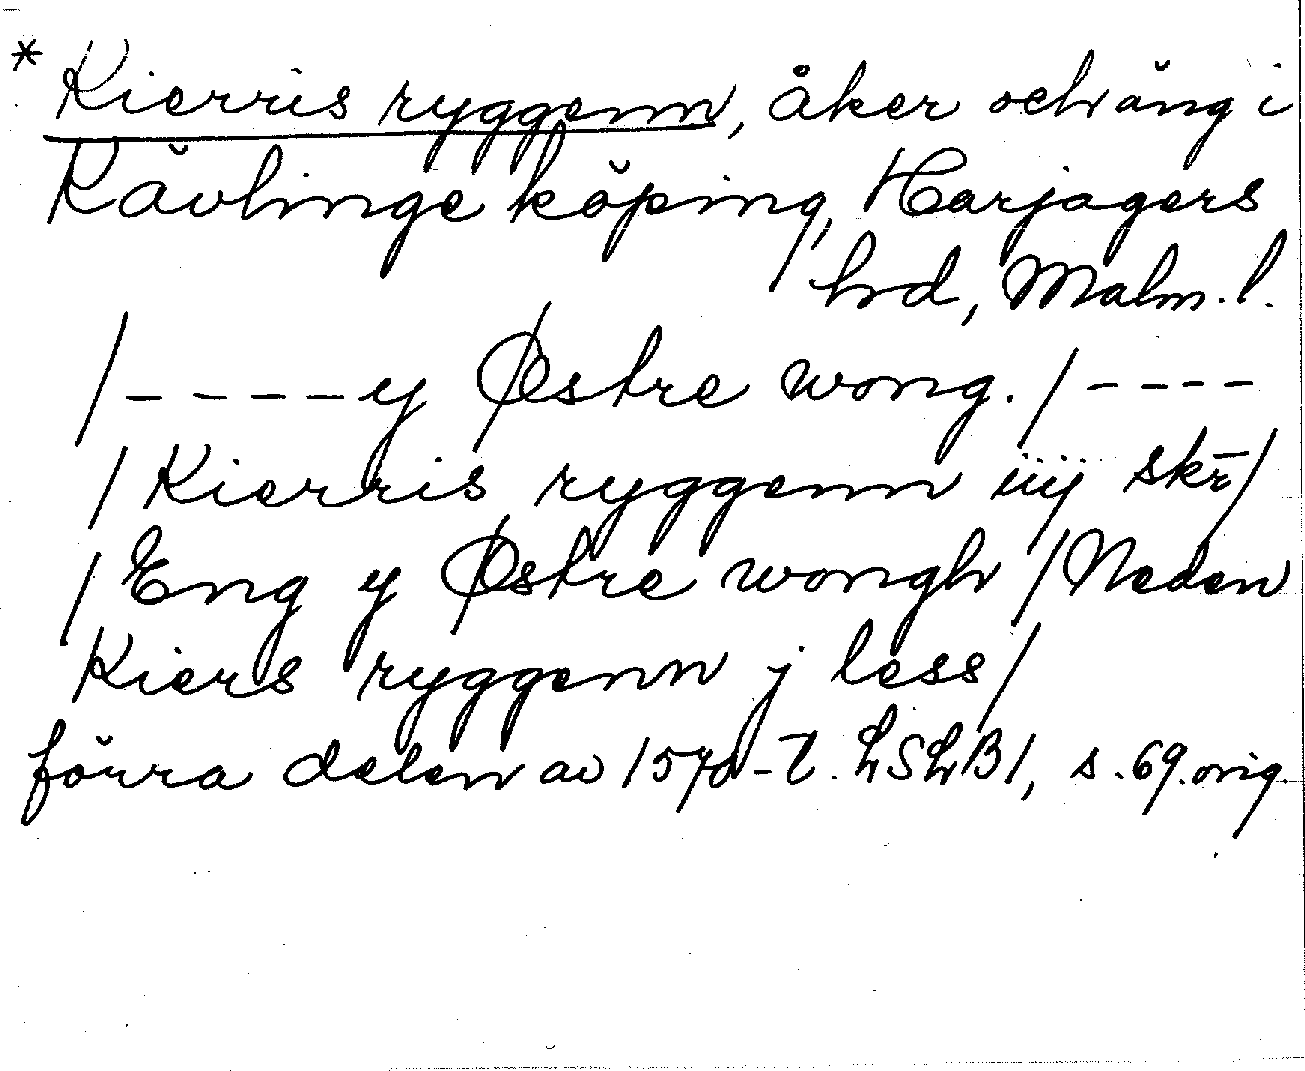 * Kierris ryggenn, åker och äng i
Kävlinge köping, Harjagers
hrd, Malm. l.
/-----y Østre wong./----
/Kierris ryggenn iiij skr̄/
/Eng y Østre wongh /Neden
Kiers ryggenn j less/
förra delen av 1570-t. LSLB1, s. 69. orig.